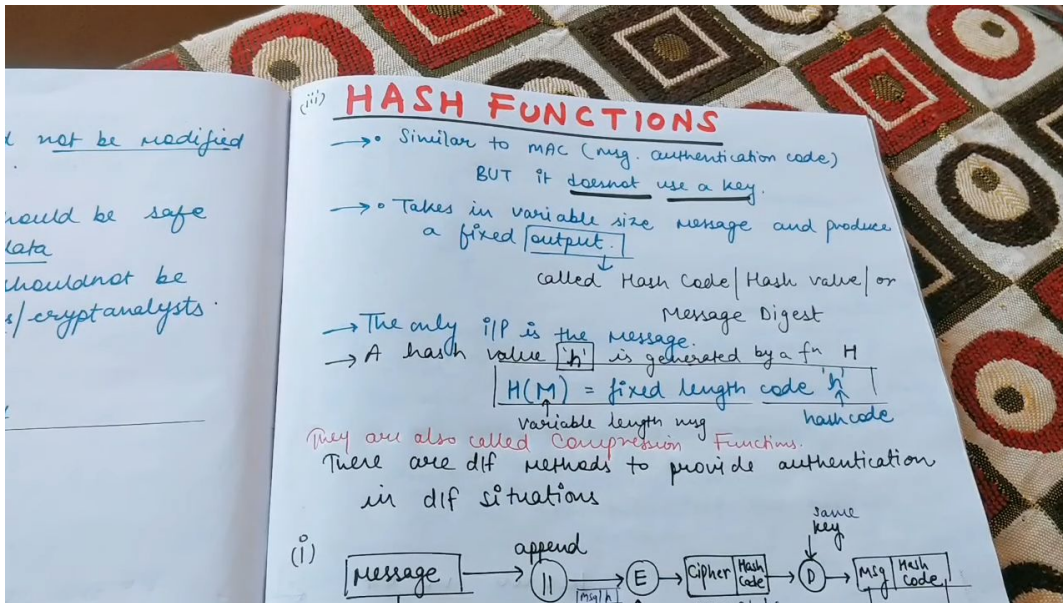 not be modified
hould be safe
data
houldnot be
s/cryptanalysts.
(iii) HASH FUNCTIONS
→• Similar to MAC (msg. authentication code)
BUT it doesnot use a key.
→• Takes in variable size message and produce
a fixed output.
called Hash Code/Hash value/or
Message Digest
→ The only i/p is the message.
→ A hash value 'h' is generated by a fn H
H(M) = fixed length code 'h'
variable length msg hashcode
They are also called Compression Functions.
There are dif methods to provide authentication
in dif situations
same
key
(i) append
Message → || → E → Cipher Hash Code → D → Msg Hash Code
Msg h